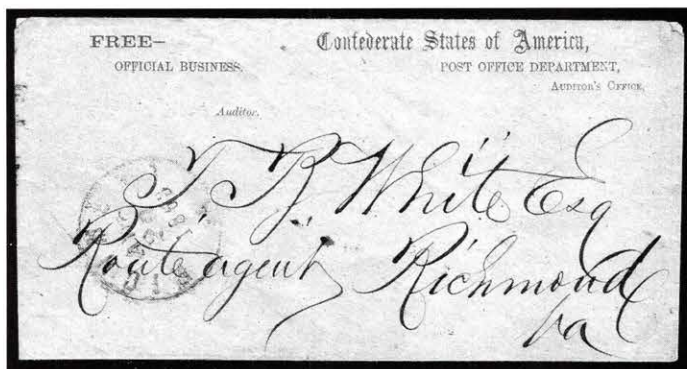 FREE—
OFFICIAL BUSINESS.
Auditor.
Confederate States of America,
POST OFFICE DEPARTMENT,
AUDITOR'S OFFICE,
T B White Esq
Route agent Richmond
Va